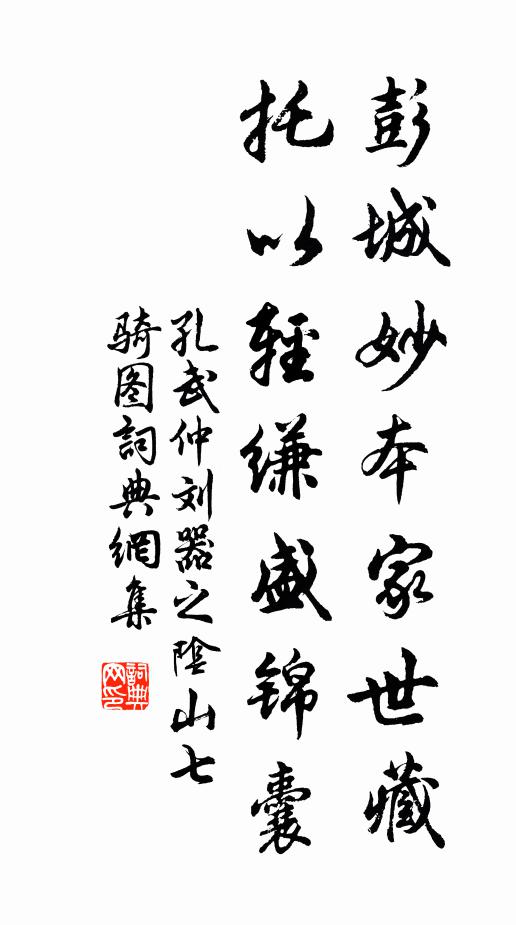 彭城妙本家世藏
托以輕縑盛錦囊
孔武仲刘器之陰山七
骑图詞典網集
詞典网印